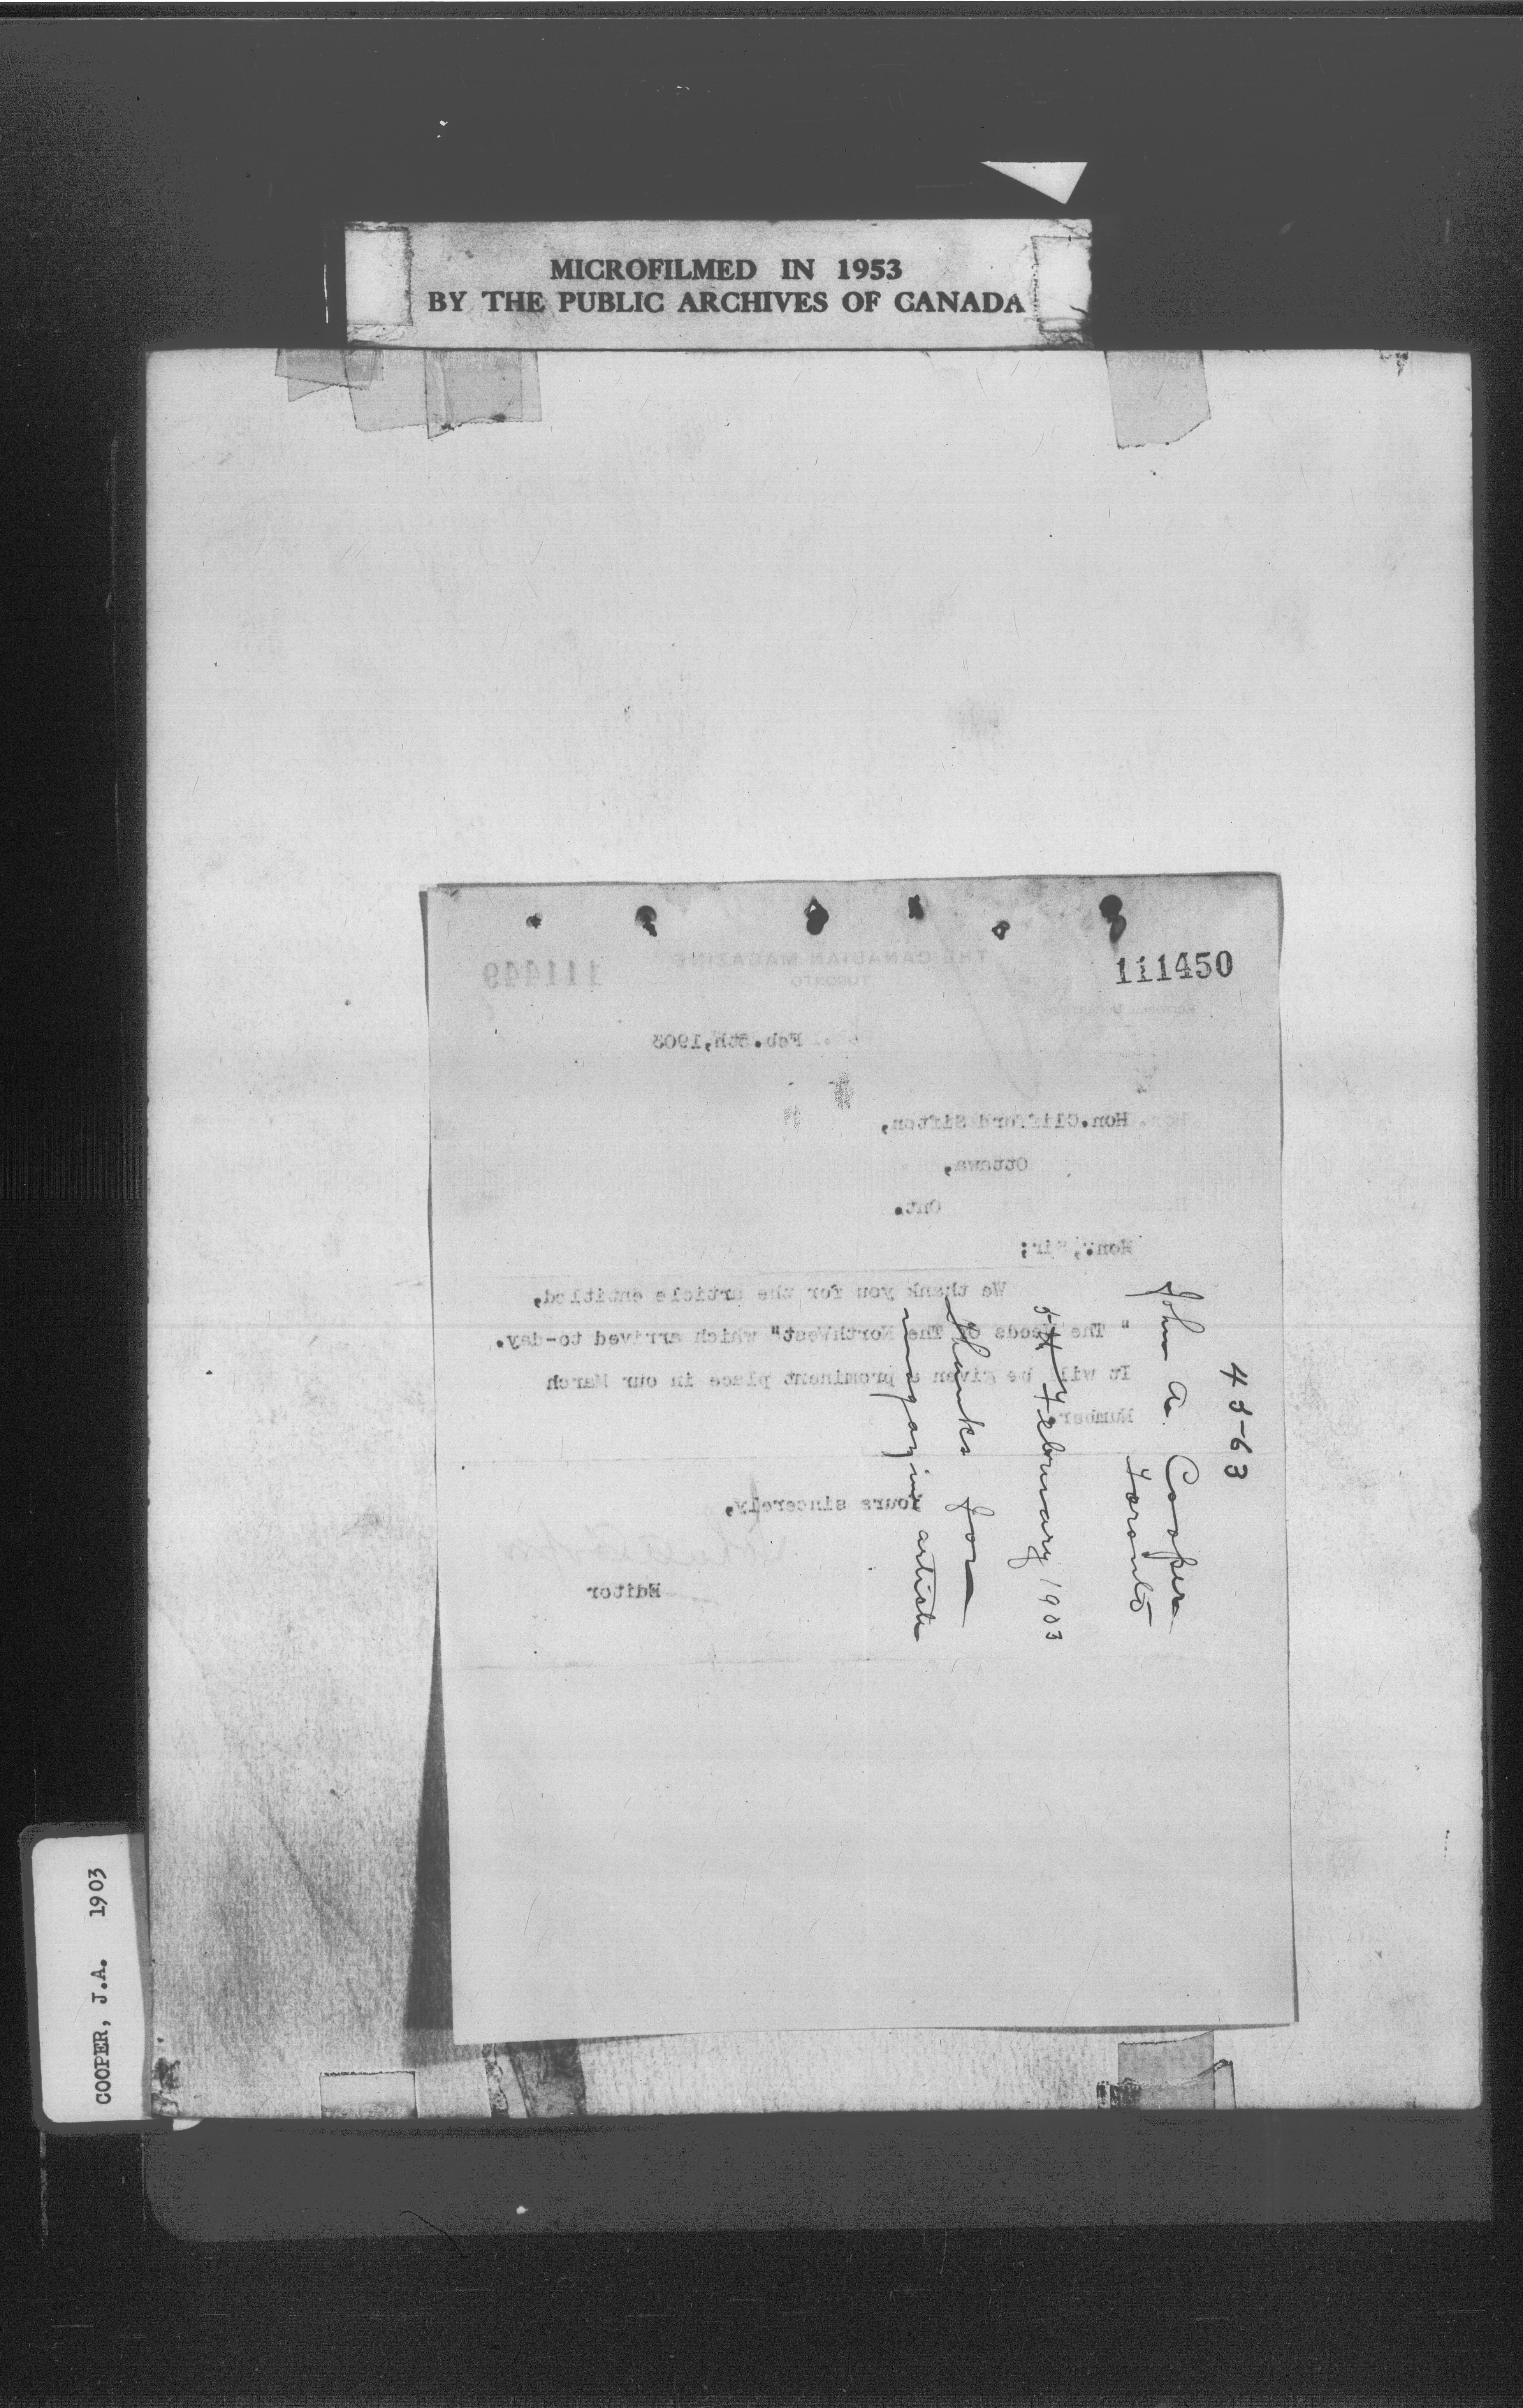 MICROFILMED IN 1953
BY THE PUBLIC ARCHIVES OF CANADA
111450
111449
THE CANADIAN MAGAZINE
TORONTO
Feb. 5th, 1903
Hon. Clifford Sifton,
Ottawa,
Ont.
Hon. Sir;
We thank you for the article entitled,
" The Needs Of The NorthWest" which arrived to-day.
It will be given a prominent place in our March
Number.
Yours sincerely,
Editor
John A. Cooper
Toronto
5th February 1903
Thanks for
magazine article
COOPER, J.A. 1903